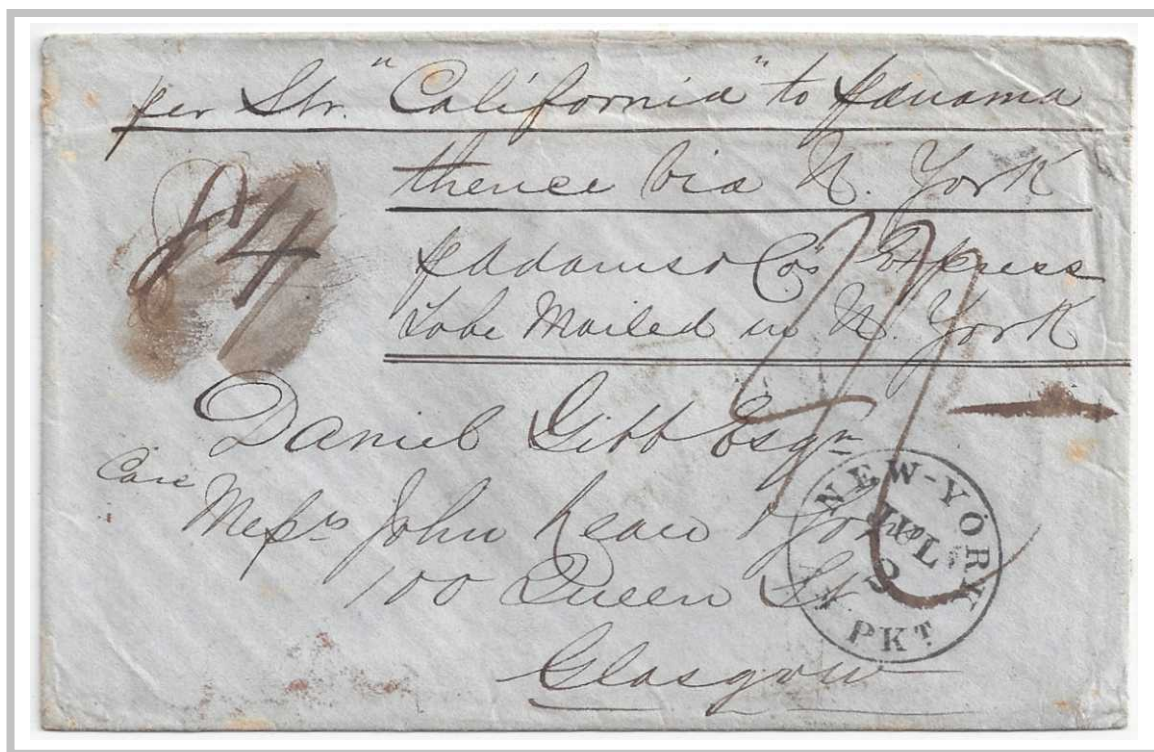 per Str. "California" to Panama
thence via N. York
p Adams & Co's Express
To be Mailed in N. York
84
Daniel Gibb Esqr
Care
Messrs John & Sons
100 Queen St.
Glasgow
NEW-YORK
JUL
PKT